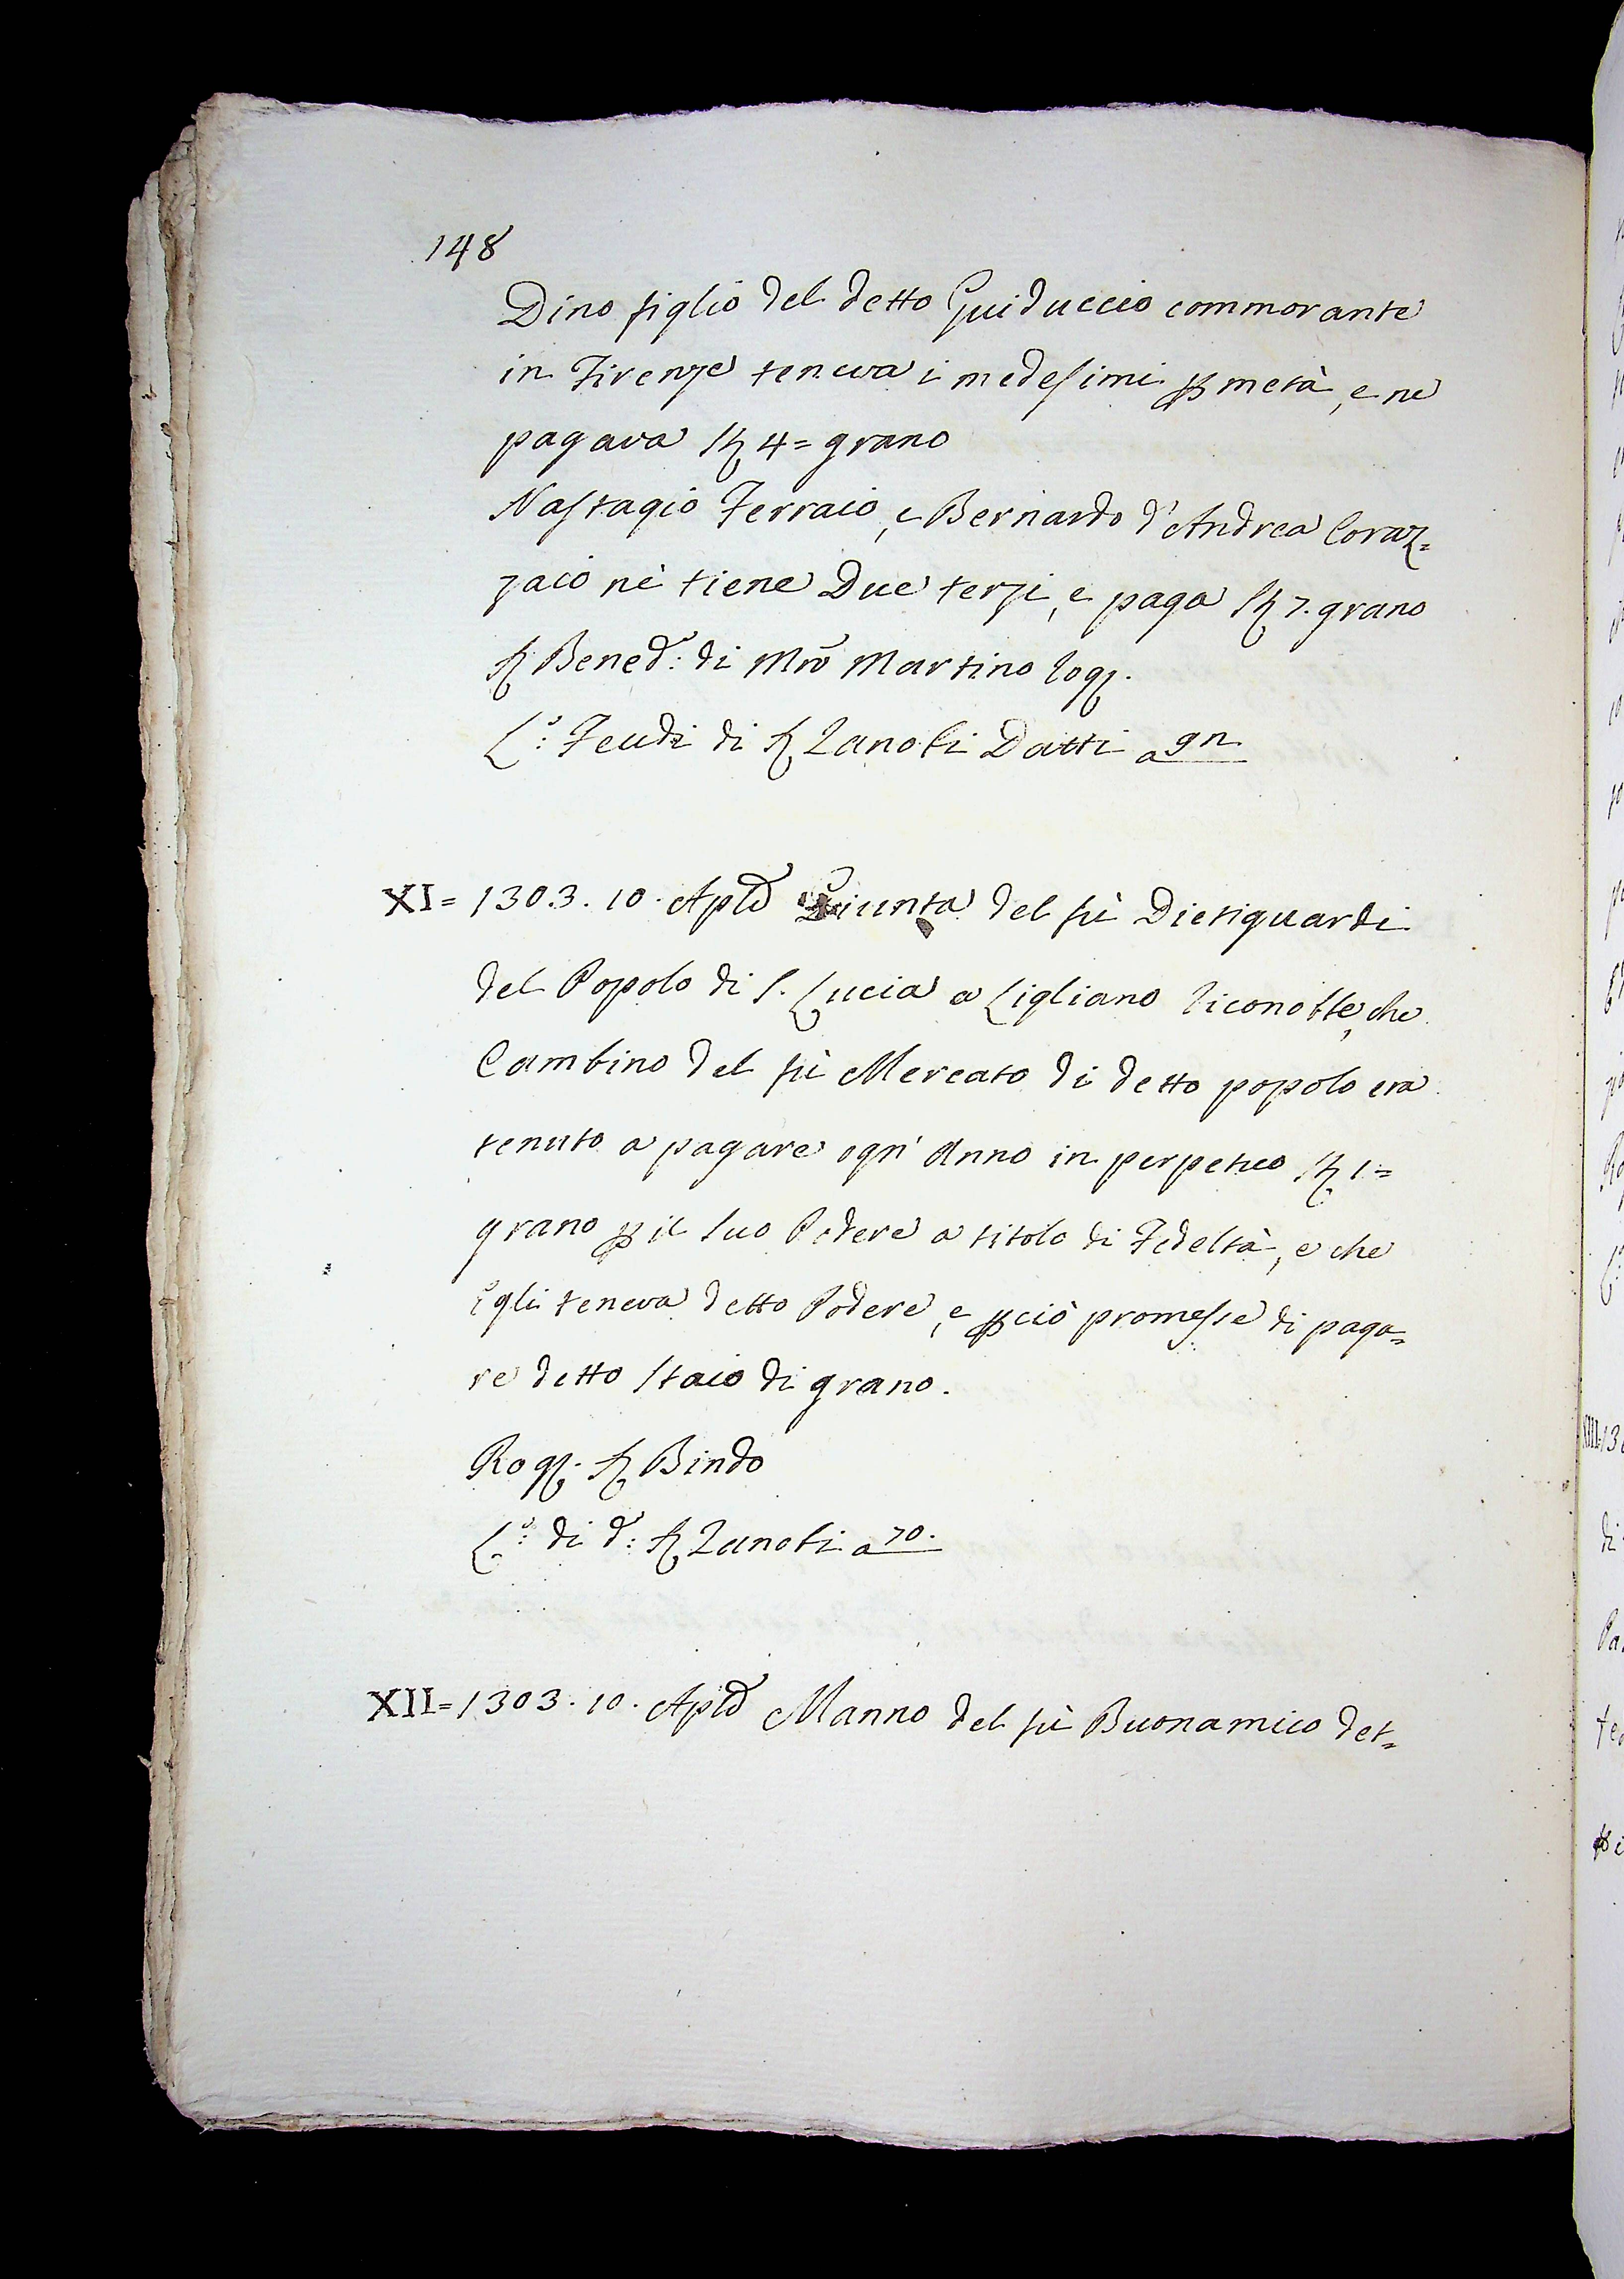 148
Dino figlio del detto Guiduccio commorante
in Firenze teneva i medesimi p metà, e ne
pagava St 4= grano
Nastagio Ferraio, e Bernardo d'Andrea Coraz=
zaio nè tiene Due terzi, e paga St 7. grano
Sr Bened: di Mro Martino rog.
Lo: Feudi di Sr Zanobi Datti a
XI= 1303. 10. Aple Giunta del fù Dietiguardi
del Popolo di S. Lucia a Ligliano riconobbe, che
Cambino del fù Mercato di detto popolo era
tenuto a pagare ogn' Anno in perpetuo St 1=
grano p il suo Podere a titolo di Fedeltà, e che
Egli teneva detto Podere, e p ciò promesse di paga=
re detto Staio di grano.
Rog. Sr Bindo
Lo: di d: Sr Zanobi a 70.
XII= 1303. 10. Aple Manno del fù Buonamico det=